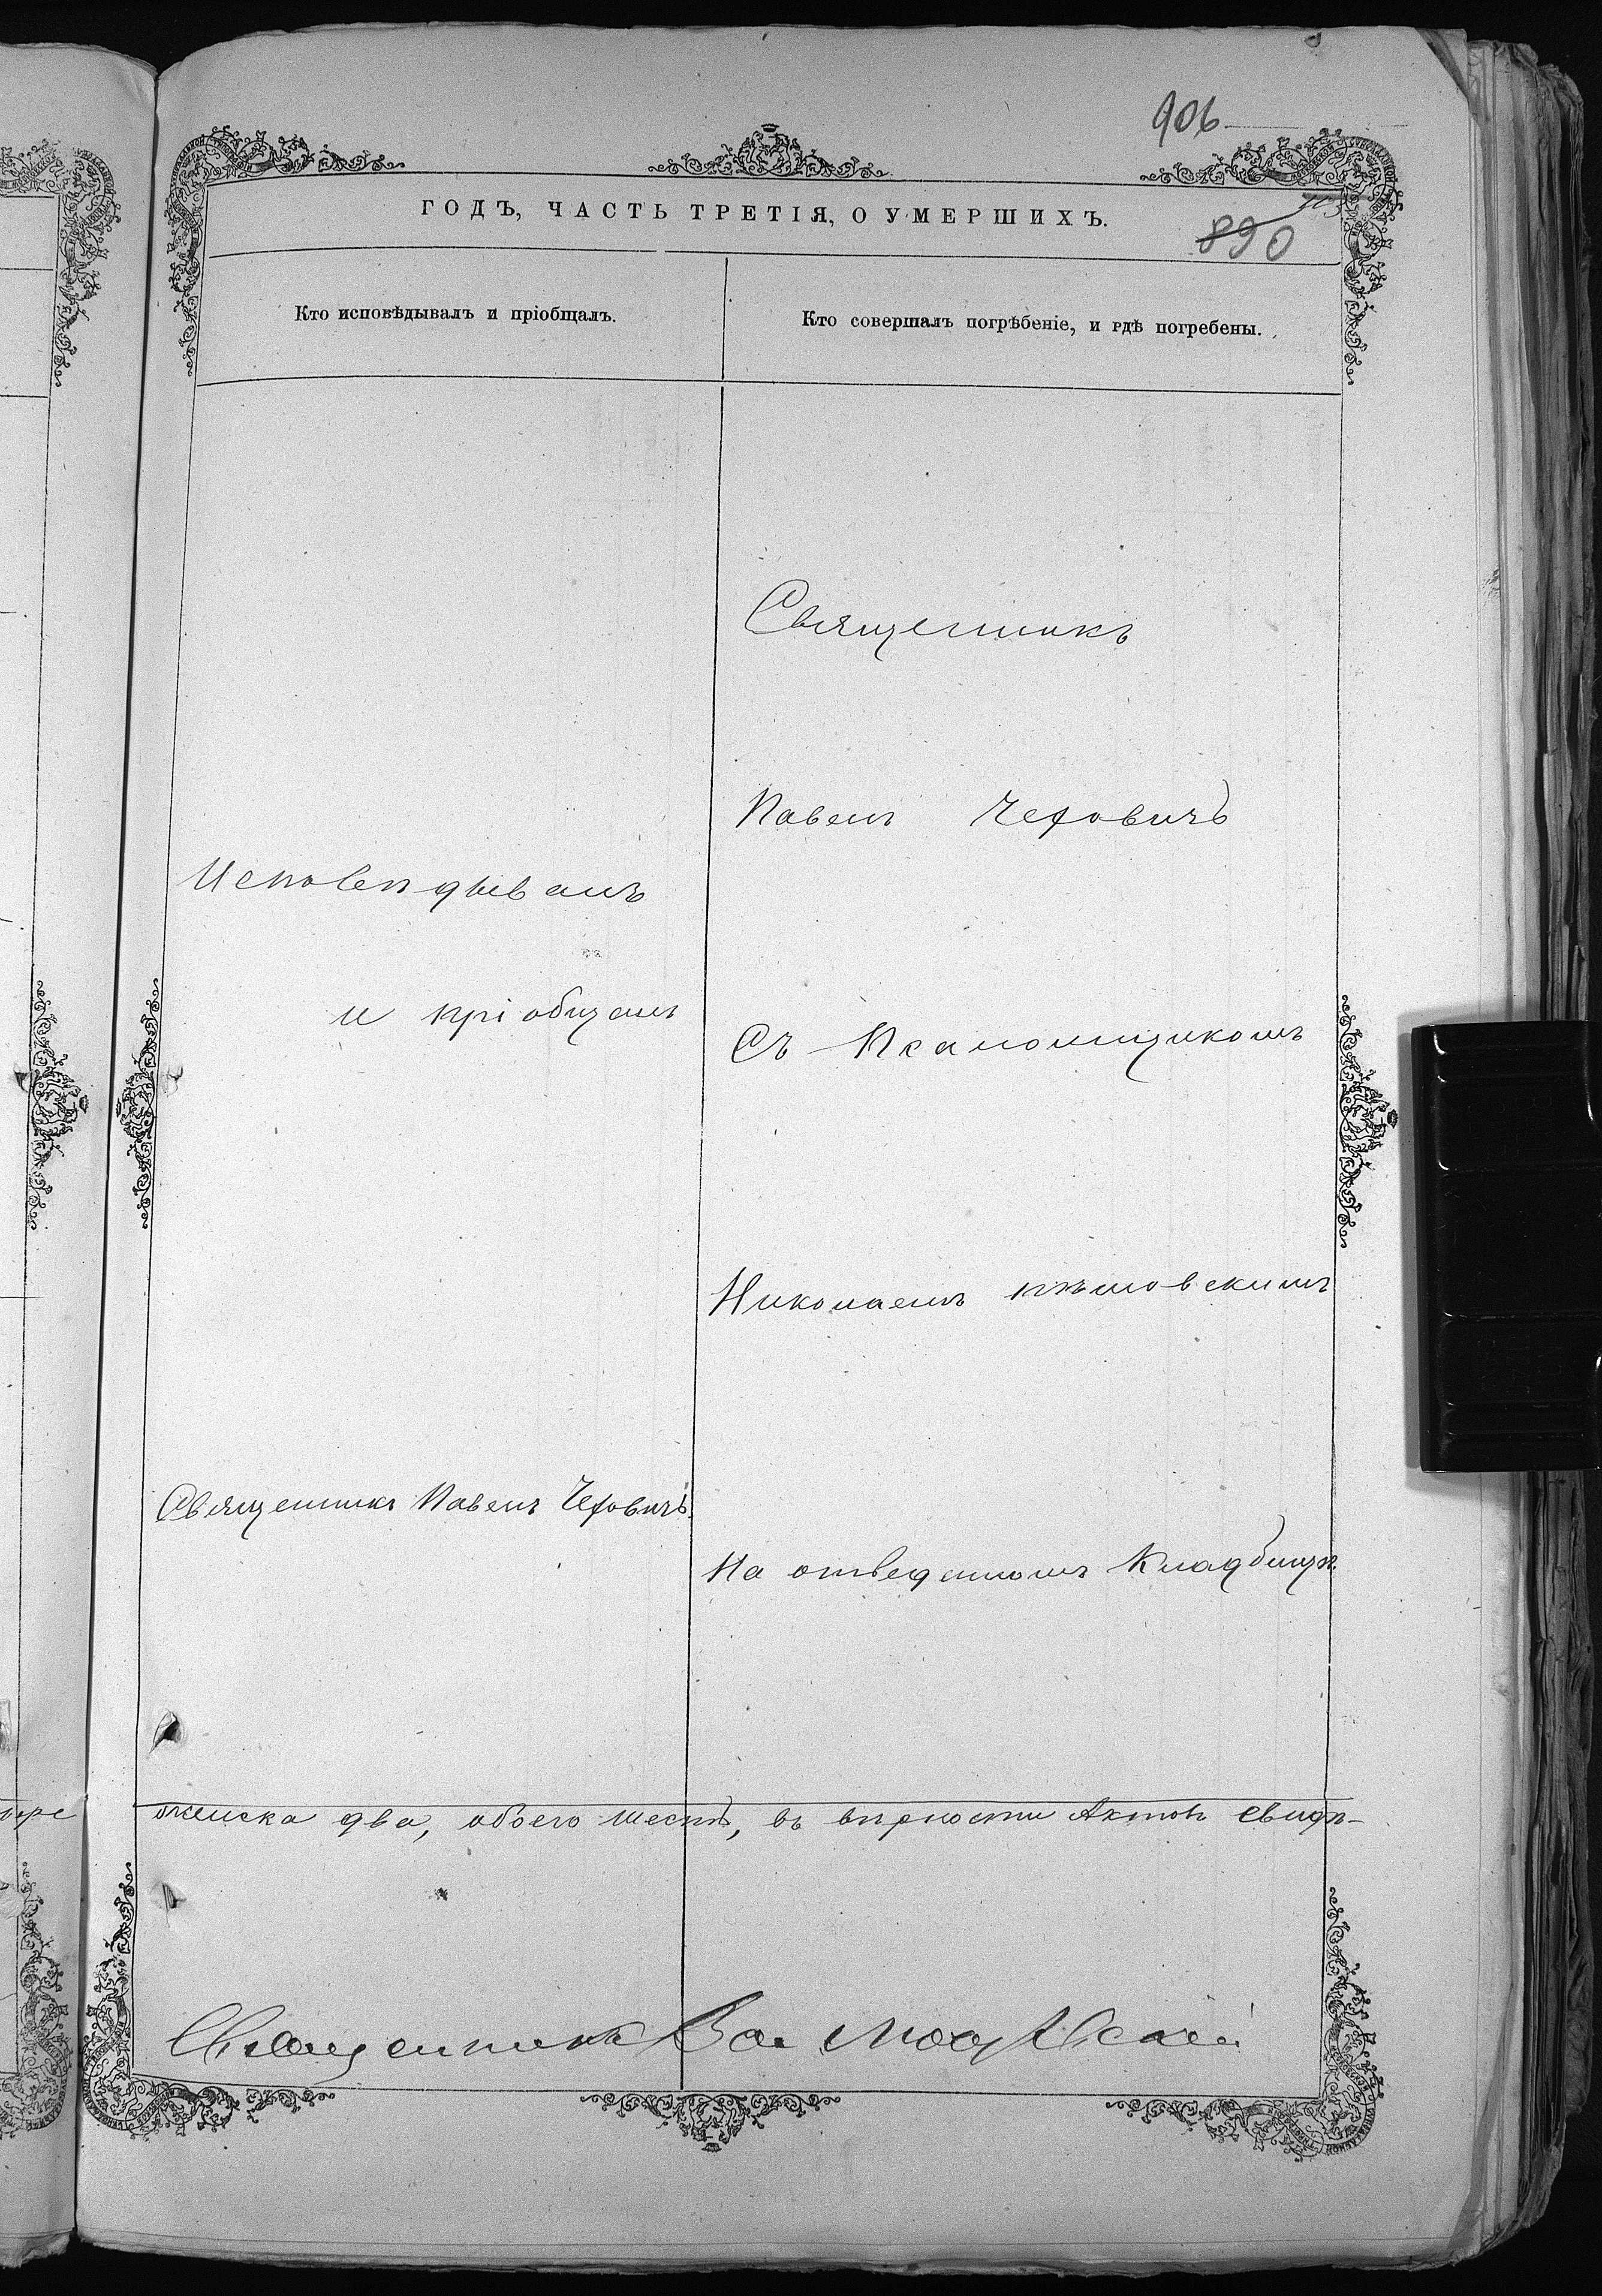 906
ГОДЪ, ЧАСТЬ ТРЕТІЯ, О УМЕРШИХЪ.
890
Кто исповѣдывалъ и пріобщалъ.
Кто совершалъ погрѣбеніе, и гдѣ погребены.
Исповѣдывалъ
и пріобщалъ
Священникъ Павелъ Чеховичъ.
Священникъ
Павелъ Чеховичъ
Съ Псаломщикомъ
Николаемъ
На отведенномъ Кладбищѣ
женска два, обоего шесть, въ вѣрности Актовъ свидѣ-
Священникъ